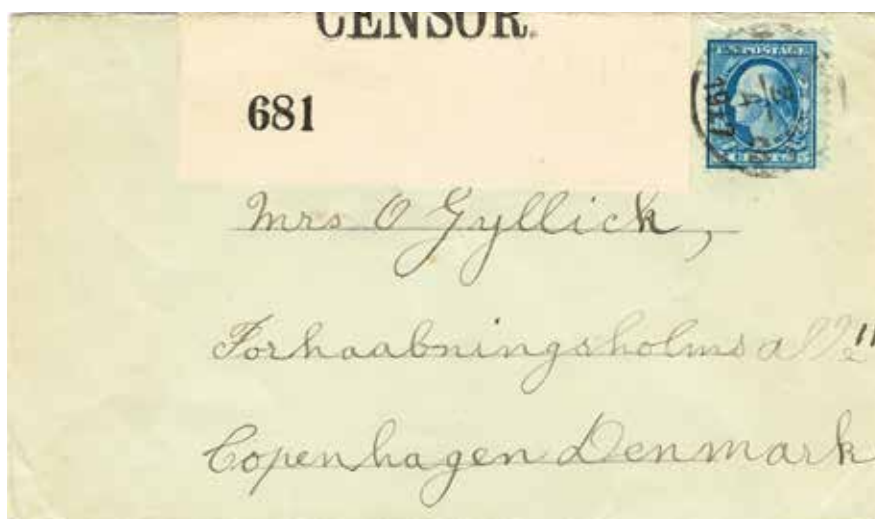 CENSOR.
681
U.S. POSTAGE
1917
Mrs O Gyllich,
Forhaabningsholms alle 11
Copenhagen Denmark